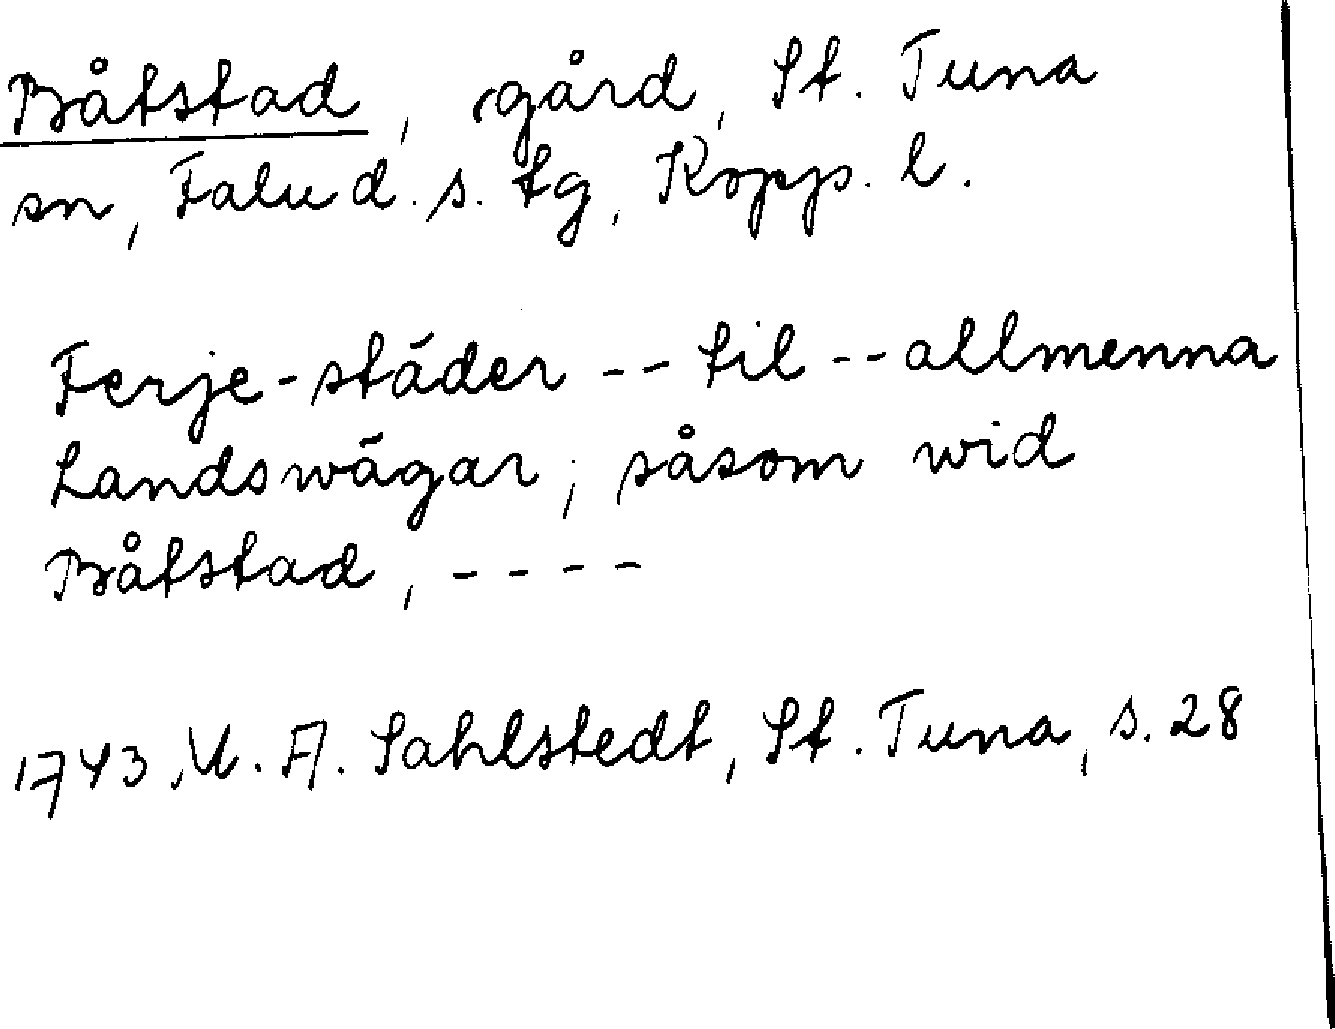 Båtstad, gård, St. Tuna
sn, Falu d. s. tg, Kopp. l.
Ferje-städer -- til -- allmenna
Landswägar; såsom wid
Båtstad, ----
1743, U. A. Sahlstedt, St. Tuna, s. 28